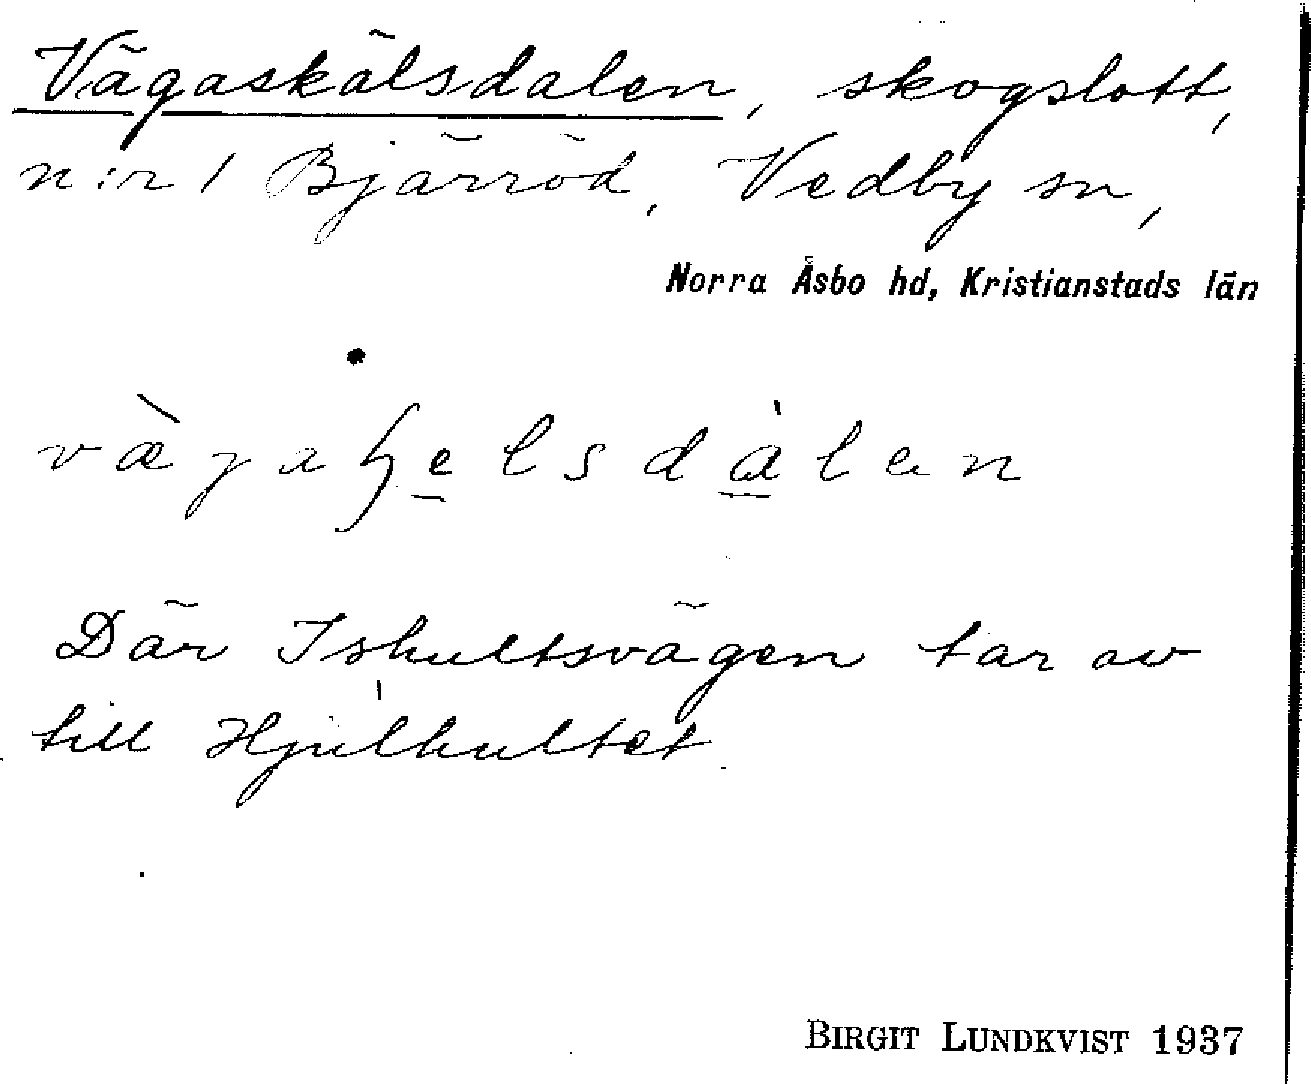 Vägaskälsdalen, skogslott,
n:r 1 Bjärröd, Vedby sn,
Norra Åsbo hd, Kristianstads län
Där Ishultsvägen tar av
till Hjulhultet
BIRGIT LUNDKVIST 1937